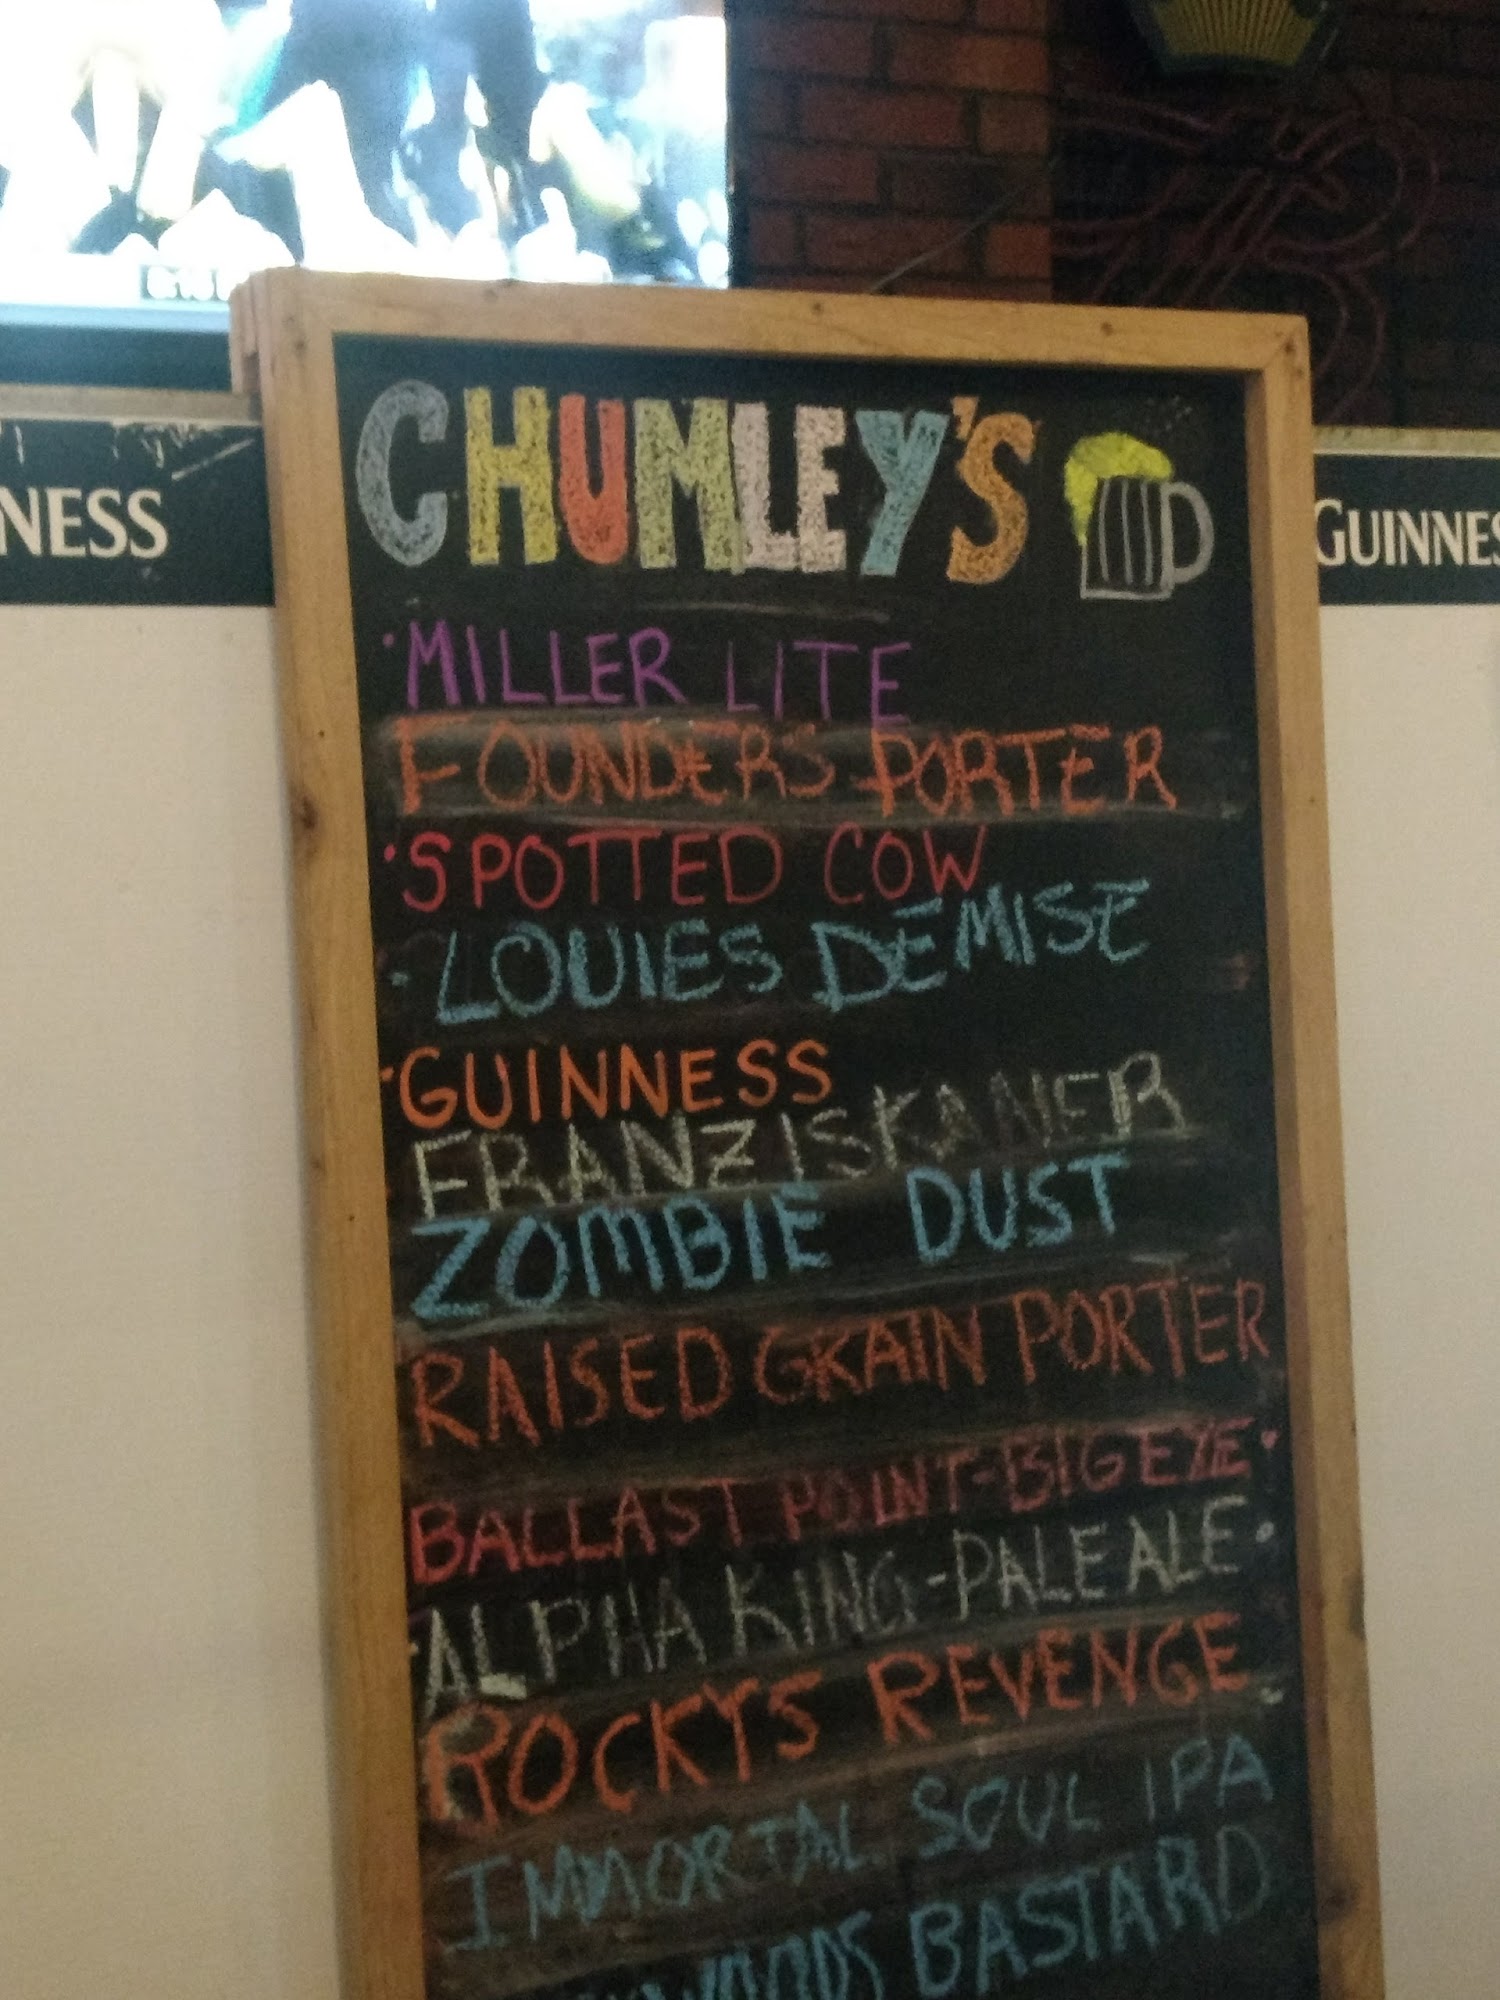 NESS
GUINNES
CHUMLEY'S
MILLER LITE
FOUNDERS PORTER
SPOTTED COW
LOUIES DEMISE
GUINNESS
FRANZISKANER
ZOMBIE DUST
RAISED GRAIN PORTER
BALLAST POINT-BIG EYE
ALPHA KING-PALE ALE
ROCKYS REVENGE
IMMORTAL SOUL IPA
BASTARD